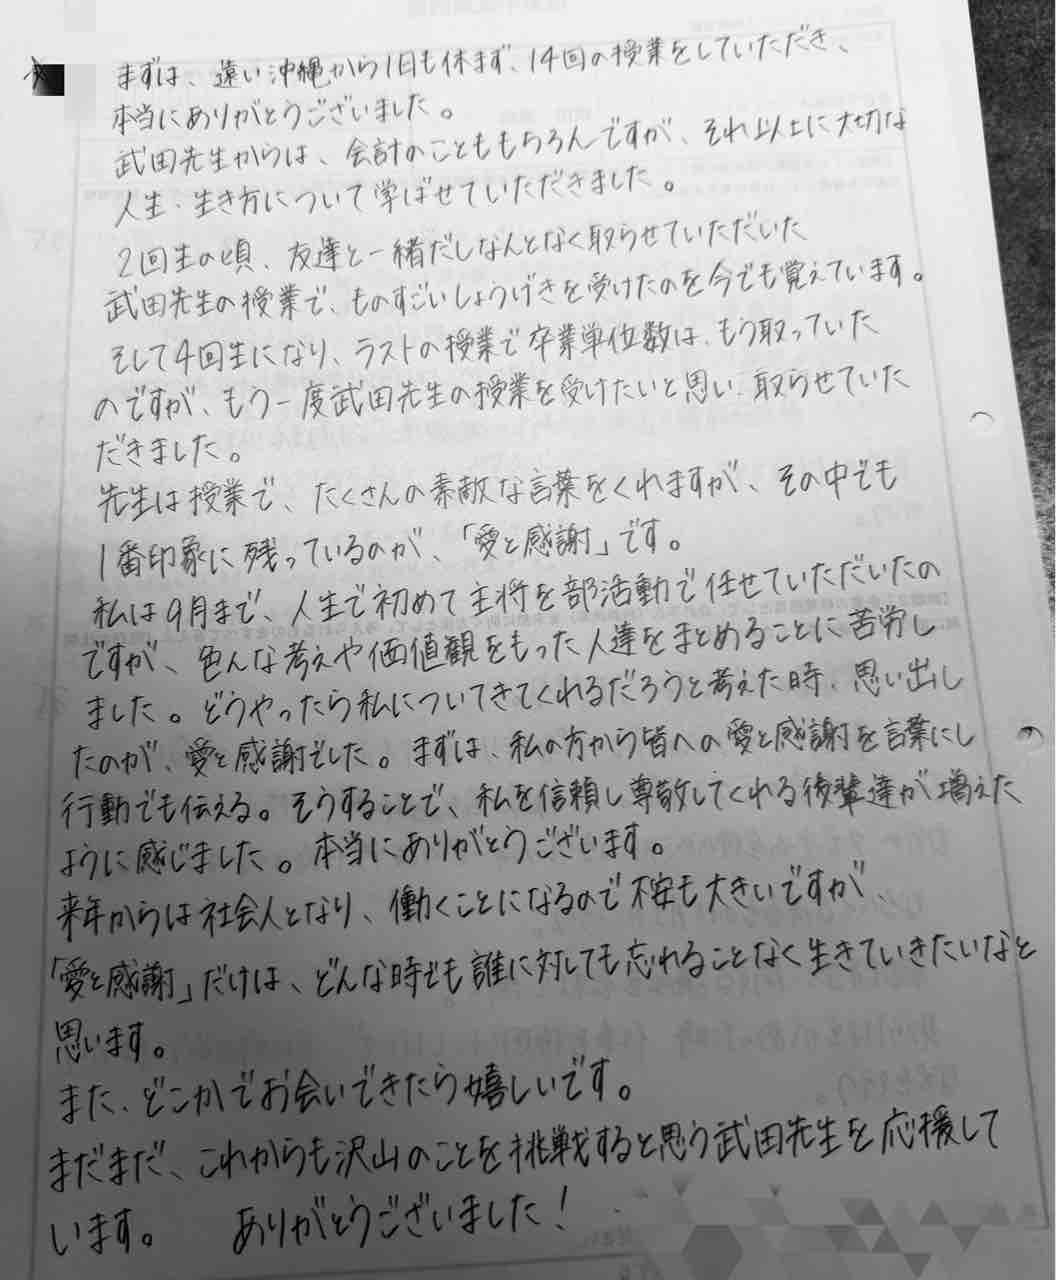 まずは、遠い沖縄から1日も休まず、14回の授業をしていただき、
本当にありがとうございました。
武田先生からは、会計のことももちろんですが、それ以上に大切な
人生・生き方について学ばせていただきました。
2回生の頃、友達と一緒だしなんとなく取らせていただいた
武田先生の授業で、ものすごいしょうげきを受けたのを今でも覚えています。
そして4回生になり、ラストの授業で卒業単位数は、もう取っていた
のですが、もう一度武田先生の授業を受けたいと思い、取らせていた
だきました。
先生は授業で、たくさんの素敵な言葉をくれますが、その中でも
1番印象に残っているのが、「愛と感謝」です。
私は9月まで、人生で初めて主将を部活動で任せていただいたの
ですが、色んな考えや価値観をもった人達をまとめることに苦労し
ました。どうやったら私についてきてくれるだろうと考えた時、思い出し
たのが、愛と感謝でした。まずは、私の方から皆への愛と感謝を言葉にし
行動でも伝える。そうすることで、私を信頼し尊敬してくれる後輩達が増えた
ように感じました。本当にありがとうございます。
来年からは社会人となり、働くことになるので不安も大きいですが、
「愛と感謝」だけは、どんな時でも誰に対しても忘れることなく生きていきたいなと
思います。
また、どこかでお会いできたら嬉しいです。
まだまだ、これからも沢山のことを挑戦すると思う武田先生を応援して
います。 ありがとうございました!